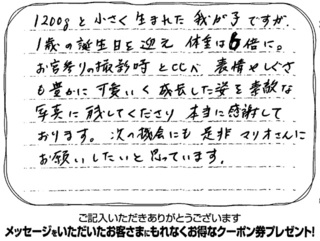 1200gと小さく生まれた我が子ですが、
1歳の誕生日を迎え 体重は6倍に。
お宮参りの撮影時と比べ 表情やしぐさ
も豊かに可愛いく成長した姿を素敵な
写真に残してくださり 本当に感謝して
おります。次の機会にも 是非 マリオさんに
お願いしたいと思っています。
ご記入いただきありがとうございます
メッセージをいただいたお客さまにもれなくお得なクーポン券プレゼント!